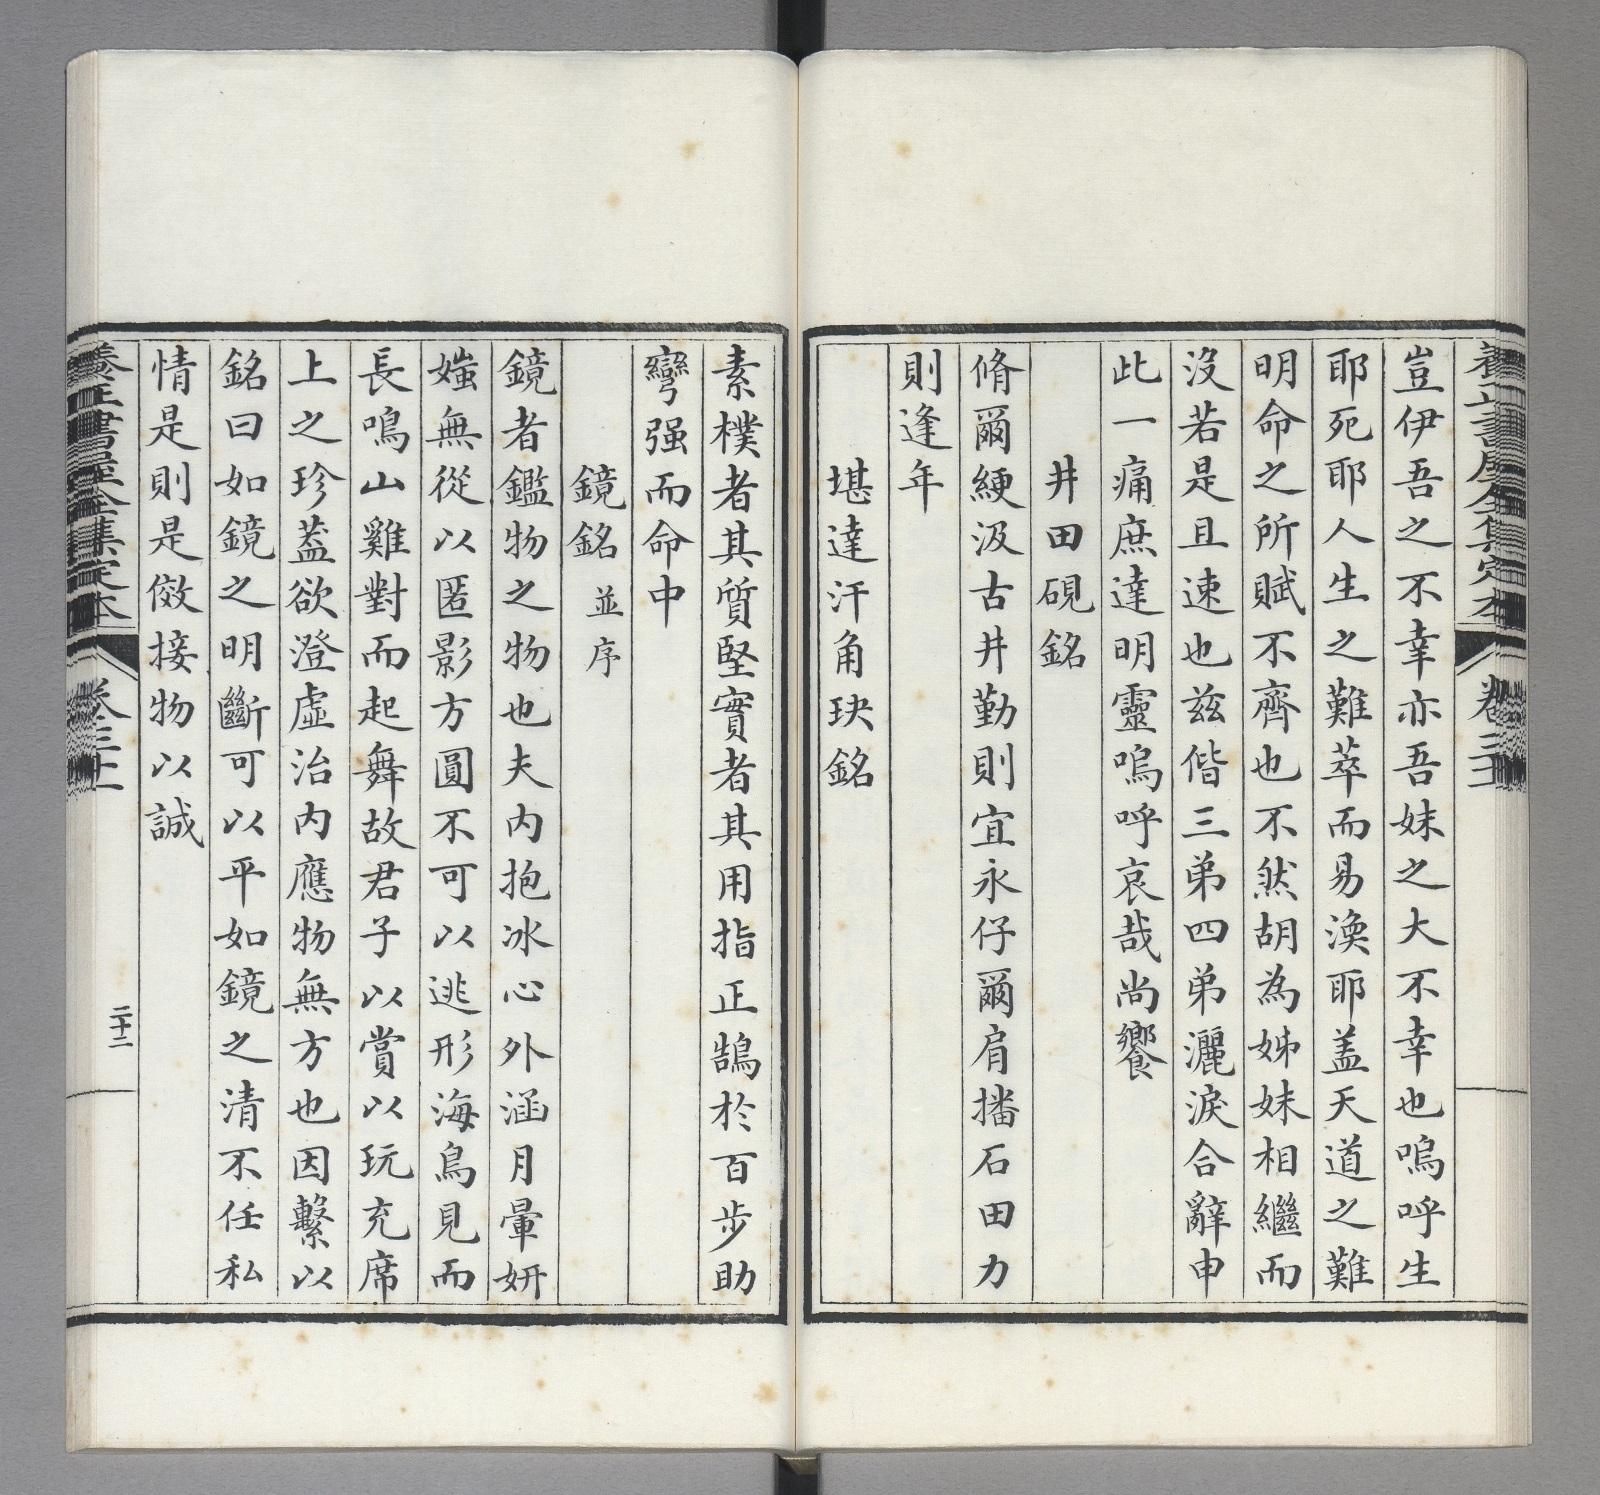 豈伊吾之不幸亦吾妹之大不幸也嗚呼生
耶死耶人生之難萃而易渙耶盖天道之難
明命之所賦不齊也不然胡為姊妹相繼而
沒若是且速也兹偕三弟四弟灑淚合辭申
此一痛庶達明靈嗚呼哀哉尚饗
井田硯銘
脩爾綆汲古井勤則宜永仔爾肩播石田力
則逢年
堪達汗角玦銘
素樸者其質堅實者其用指正鵠於百步助
彎强而命中
鏡銘並序
鏡者鑑物之物也夫内抱冰心外涵月暈妍
媸無從以匿影方圓不可以逃形海鳥見而
長鳴山雞對而起舞故君子以賞以玩充席
上之珍葢欲澄虛治内應物無方也因繫以
銘曰如鏡之明斷可以平如鏡之清不任私
情是則是傚接物以誠
養正書屋全集定本
卷三十一
二十二